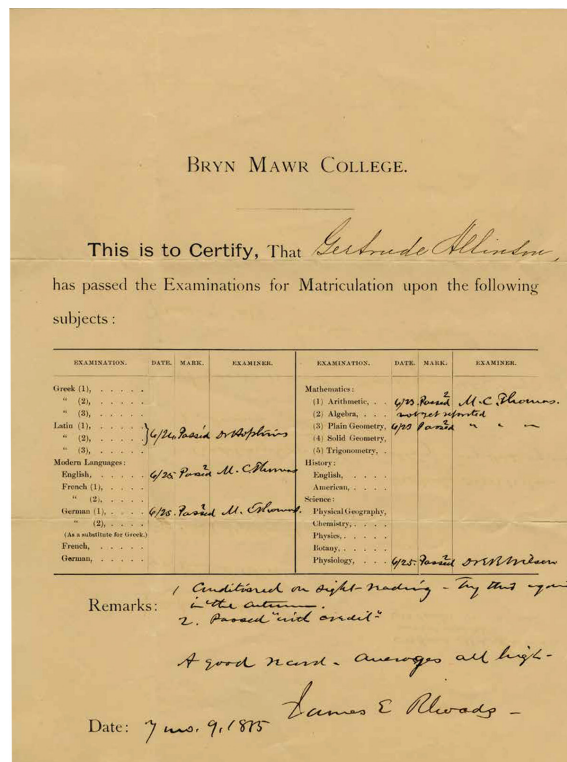 BRYN MAWR COLLEGE.
This is to Certify, That Gertrude Allinson,
has passed the Examinations for Matriculation upon the following
subjects :
EXAMINATION. DATE. MARK. EXAMINER.
Greek (1), . . . . .
" (2), . . . . .
" (3), . . . . .
Latin (1), . . . . .
" (2), . . . . . 6/24. Passed Dr Hopkins
" (3), . . . . .
Modern Languages :
English, . . . . . 6/25. Passed 2 M. C. Thomas
French (1), . . . .
" (2), . . . .
German (1), . . . . 6/25. Passed 2 M. C. Thomas.
" (2), . . . . .
(As a substitute for Greek.)
French, . . . .
German, . . . .
EXAMINATION. DATE. MARK. EXAMINER.
Mathematics :
(1) Arithmetic, . . 6/23. Passed 2 M. C. Thomas.
(2) Algebra, . . . not yet reported
(3) Plain Geometry, 6/23 Passed 2 " " "
(4) Solid Geometry,
(5) Trigonometry, .
History :
English, . . . .
American, . . . .
Science :
Physical Geography,
Chemistry, . . . .
Physics, . . . . .
Botany, . . . . .
Physiology, . . . 6/25. Passed 2 Dr E B Wilson
Remarks : 1 Conditioned on sight-reading - Try this again
in the autumn.
2. Passed "with credit"
A good record - averages all high -
James E Rhoads -
Date : 7 mo. 9, 1885